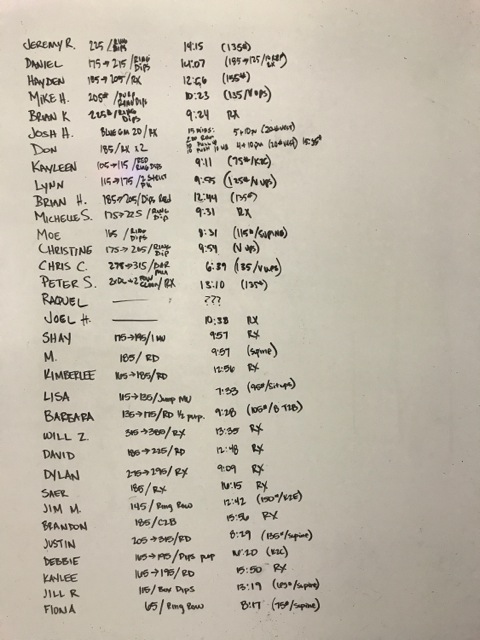 JEREMY R. 225 / RING DIPS 14:15 (135#)
DANIEL 175→215 / RING DIPS 14:07
HAYDEN 185→205 / RX 12:56 (155#)
MIKE H. 205# / RING DIPS 10:23 (135/VUPS)
BRIAN K 225# / RING DIPS 9:24 RX
JOSH H. 20 / RX
DON 185 / RX x2
KAYLEEN 105→115 / RED RING DIPS 9:11 (75#/K2C)
LYNN 115→175 / 9:55 (125#/Vups)
BRIAN H. 185→205 / Dips Red 12:44 (135#)
MICHELLE S. 175→225 / RING Dip 9:31 RX
MOE 165 / RING DIPS 8:31 (115#/supine)
CHRISTING 175→205 / RING DIP 9:59 (V ups)
CHRIS C. 275→315 / BAR 6:39 (135/Vups)
PETER S. / RX 13:10 (135#)
RAQUEL ——— ???
JOEL H. ——— 10:38 RX
SHAY 175→195 / 1 MU 9:57 RX
M. 185 / RD 9:57 (supine)
KIMBERLEE 165→185 / RD 12:56 RX
LISA 115→135 / Jump MU 7:33 (95#/Situps)
BARBARA 135→175 / RD 1/2 purp. 9:28 (105#/8 T2B)
WILL Z. 345→380 / RX 13:35 RX
DAVID 185→225 / RD 12:48 RX
DYLAN 275→295 / RX 9:09 RX
SAER 185 / RX 16:15 RX
JIM M. 145 / Ring Row 12:42 (150#/K2E)
BRANDON 185 / C2B 13:56 RX
JUSTIN 205→315 / RD 8:29 (135#/supine)
DEBBIE 165→195 / Dips purp 10:20 (K2C)
KAYLEE 165→195 / RD 15:50 RX
JILL R 115 / Box Dips 13:19 (125#/supine)
FIONA 65 / Ring Row 8:17 (75#/supine)